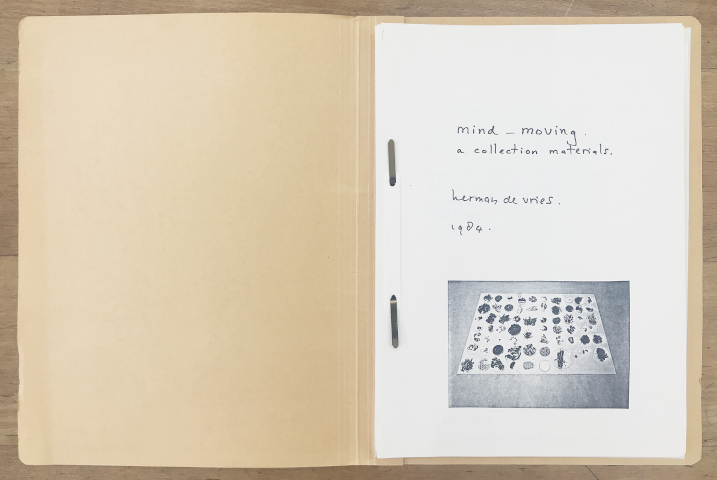 mind – moving.
a collection materials.
herman de vries.
1984.